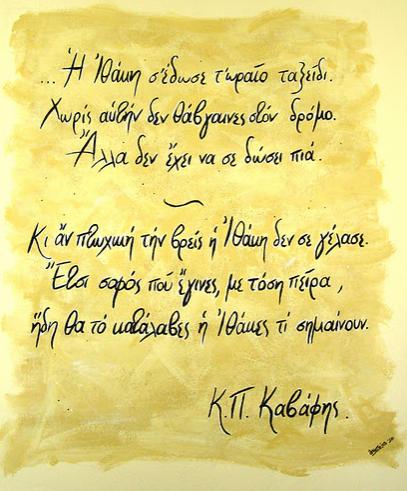 ...Ἡ Ἰθάκη σ' ἔδωσε τ' ὡραῖο ταξείδι.
Χωρίς αὐτήν δεν θάβγαινες στόν δρόμο.
Ἄλλα δεν ἔχει να σε δώσει πιά.
Κι ἄν πτωχική τήν βρεῖς ἡ Ἰθάκη δεν σε γέλασε.
Ἔτσι σοφός πού ἔγινες, με τόση πεῖρα,
ἤδη θα τό κατάλαβες ἡ Ἰθάκες τί σημαίνουν.
Κ.Π. Καβάφης.